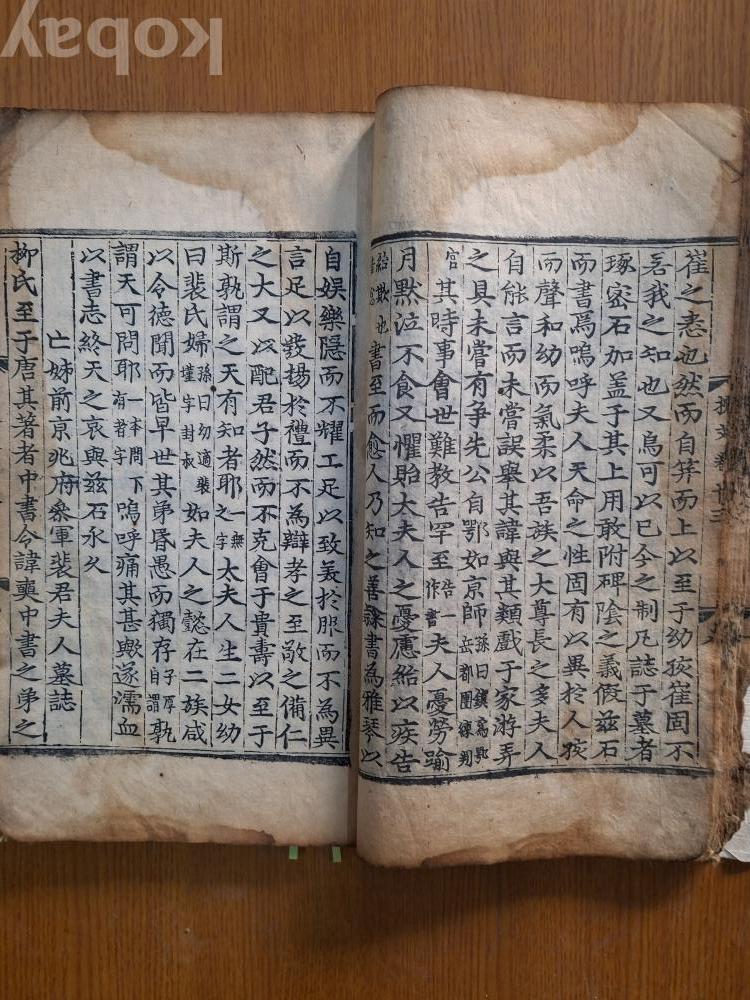 kobay
崔之悫也然而自笄而上以至于幼孩崔固不
忘我之知也又烏可以已今之制凡誌于墓者
琢密石加盖于其上用敢附碑陰之義假兹石
而書焉嗚呼夫人天命之性固有以異於人孩
而聲和幼而氣柔以吾族之大尊長之多夫人
自能言而未嘗誤舉其諱與其類戲于家游弄
之具未嘗有争先公自鄂如京師 孫曰鎮爲鄂岳都團練判
官 其時事會世難教告罕至 告作書 夫人憂勞踰
月黙泣不食又懼貽太夫人之憂慮紿以疾告
紿欺也 書至而愈人乃知之善隷書為雅琴以
自娱樂隱而不耀工足以致美於服而不為異
言足以發揚於禮而不為辯孝之至敬之備仁
之大又以配君子然而不克會于貴壽以至于
斯孰謂之天有知者耶 一無之字 太夫人生二女幼
曰裴氏婦 孫曰幼適裴墐字封叔 如夫人之懿在二族咸
以令徳聞而皆早世其弟昏愚而獨存 子厚自謂 孰
謂天可問耶 一本問下有者字 嗚呼痛其甚歟遂濡血
以書志終天之哀與兹石永久
亡姊前京兆府叅軍裴君夫人墓誌
柳氏至于唐其著者中書令諱奭中書之弟之